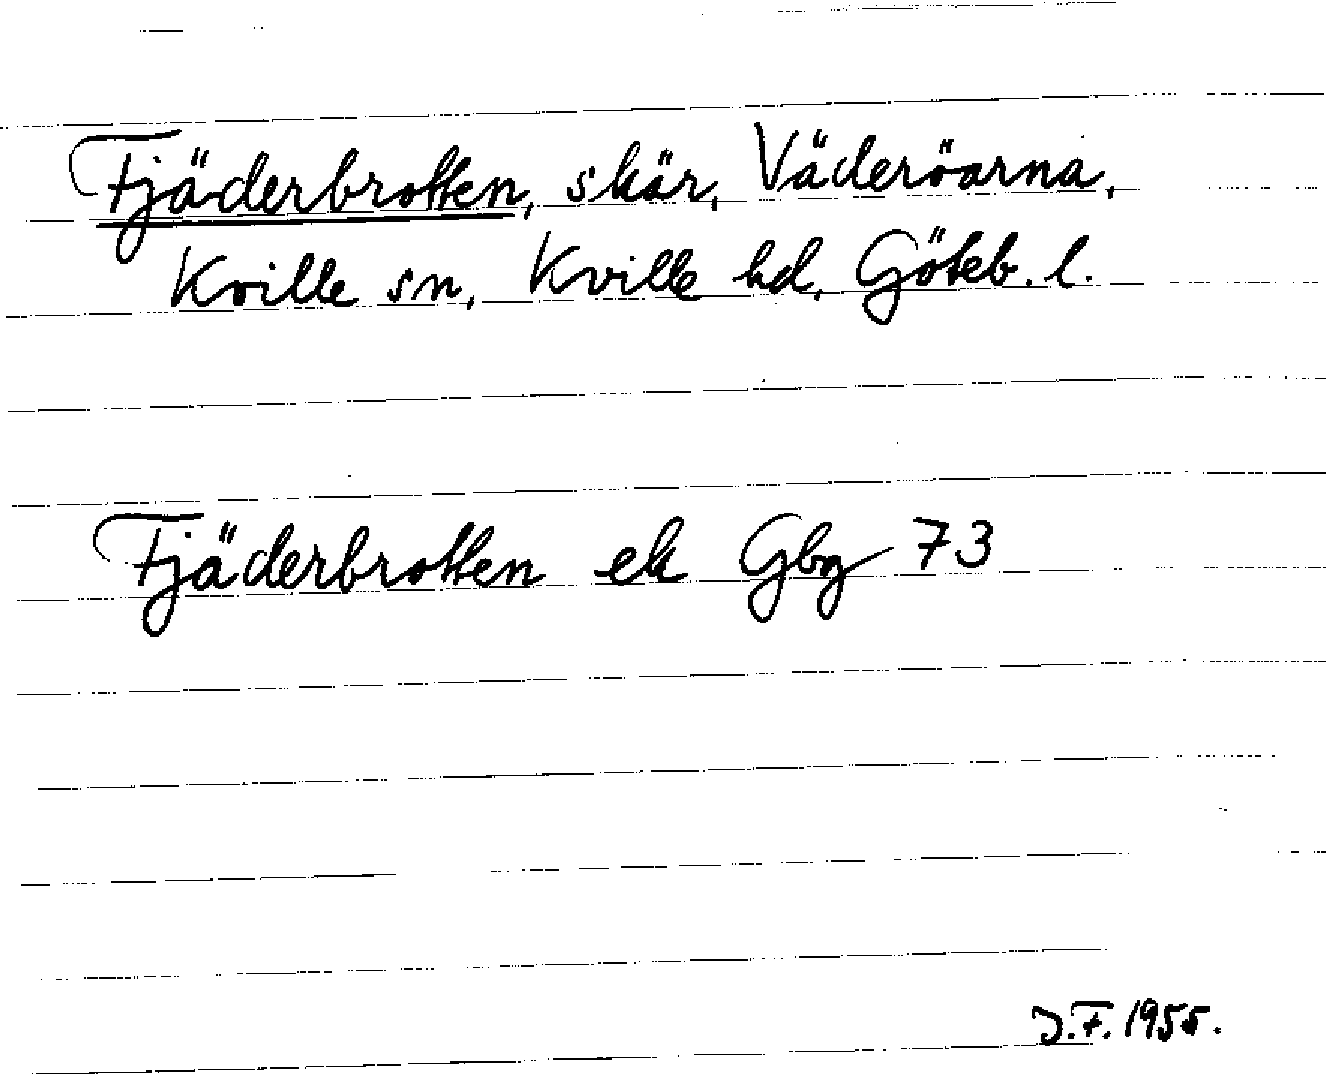 Fjäderbrotten, skär, Väderöarna,
Kville sn, Kville hd, Göteb. l.
Fjäderbrotten ek Gbg 73
J.F. 1955.